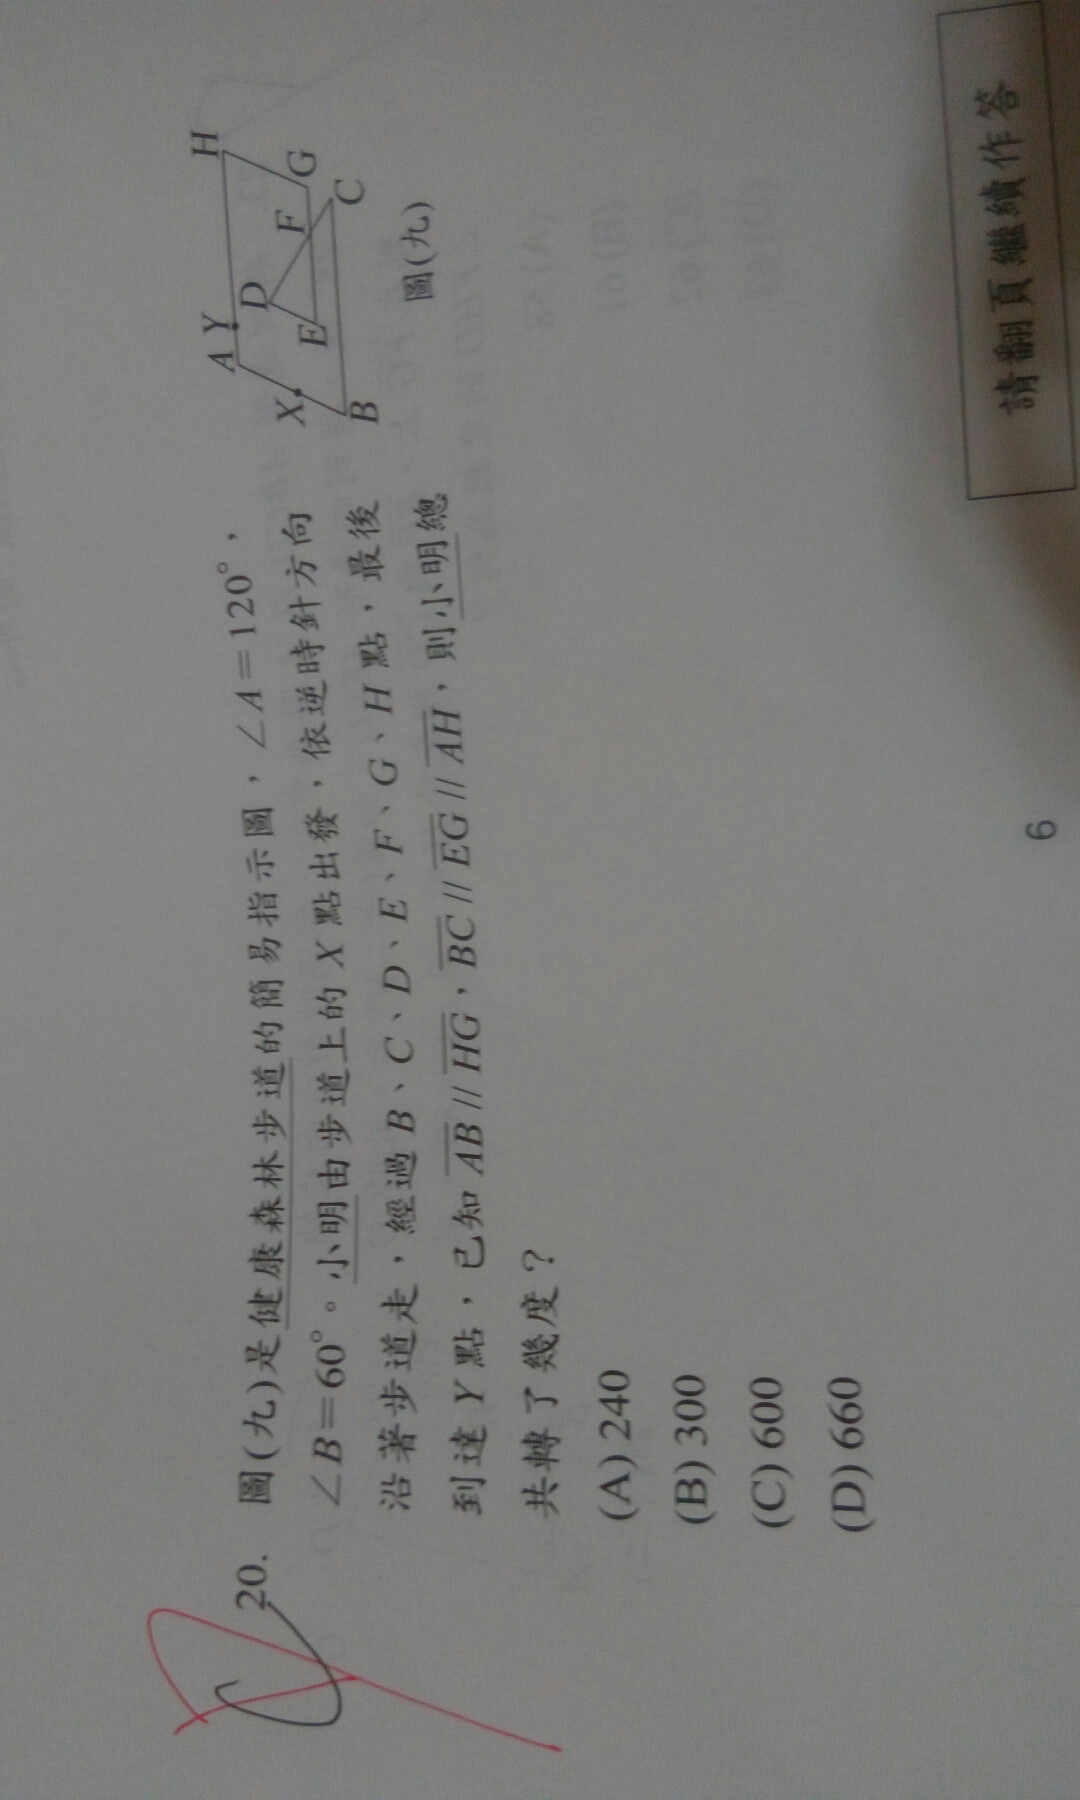 20. 圖(九)是健康森林步道的簡易指示圖，∠A＝120°，
∠B＝60°。小明由步道上的 X 點出發，依逆時針方向
沿著步道走，經過 B、C、D、E、F、G、H 點，最後
到達 Y 點，已知 AB // HG，BC // EG // AH，則小明總
共轉了幾度？
(A) 240
(B) 300
(C) 600
(D) 660
A Y H
X D F G
E
B C
圖(九)
6
請翻頁繼續作答